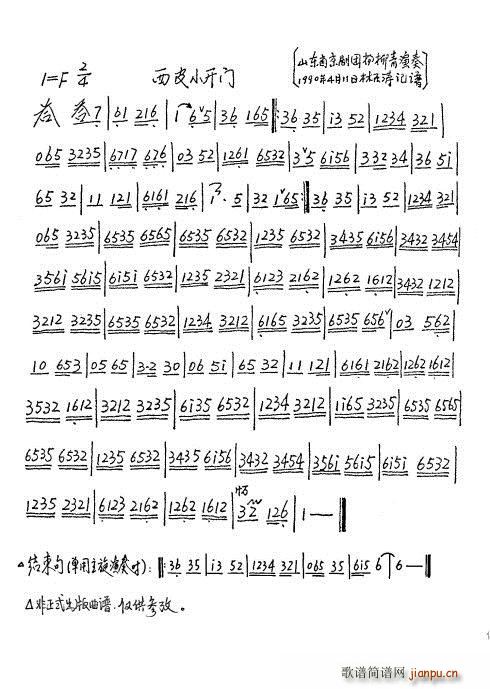 1=F 2/4 西皮小开门 山东省京剧团 杨柳青演奏
1990年4月11日 林玉涛记谱
61 216 | 1 6ˇ5 | 36 165 ‖: 36 35 | i3 52 | 1234 321 |
065 3235 | 6717 676 | 03 52 | 1261 6532 | 3ˇ5 6i56 | 332 34 | 36 5i |
65 32 | 11 121 | 6161 216 | 1· 5 | 32 1ˇ65 :‖: 36 35 | i3 52 | 1234 321 |
065 3235 | 6535 6565 | 6535 6532 | 1235 6532 | 3435 6i56 | 3432 3454 |
356i 56i5 | 6i5i 6532 | 1235 2321 | 6123 2162 | 1262 1612 | 3432 1212 |
3212 3235 | 6535 6532 | 1234 3212 | 6165 3235 | 6535 656ˇ | 03 562 |
10 653 | 05 65 | 3·2 30 | 06 5i | 65 32 | 11 121 | 6161 2162 | 1262 1612 |
3532 1612 | 3212 3235 | 6i35 6532 | 1234 3212 | 1i65 3235 | 6535 6565 |
6535 6532 | 1235 6532 | 3435 6i56 | 3432 3454 | 356i 56i5 | 6i5i 6532 |
1235 2321 | 6123 2162 | 1262 1612 | 32 126 | 1 — ‖
△结束句(单用主旋演奏时): ‖: 36 35 | i3 52 | 1234 321 | 065 35 | 6i5 6 | 6 — ‖
△非正式出版曲谱.仅供参考。
歌谱简谱网
jianpu.cn